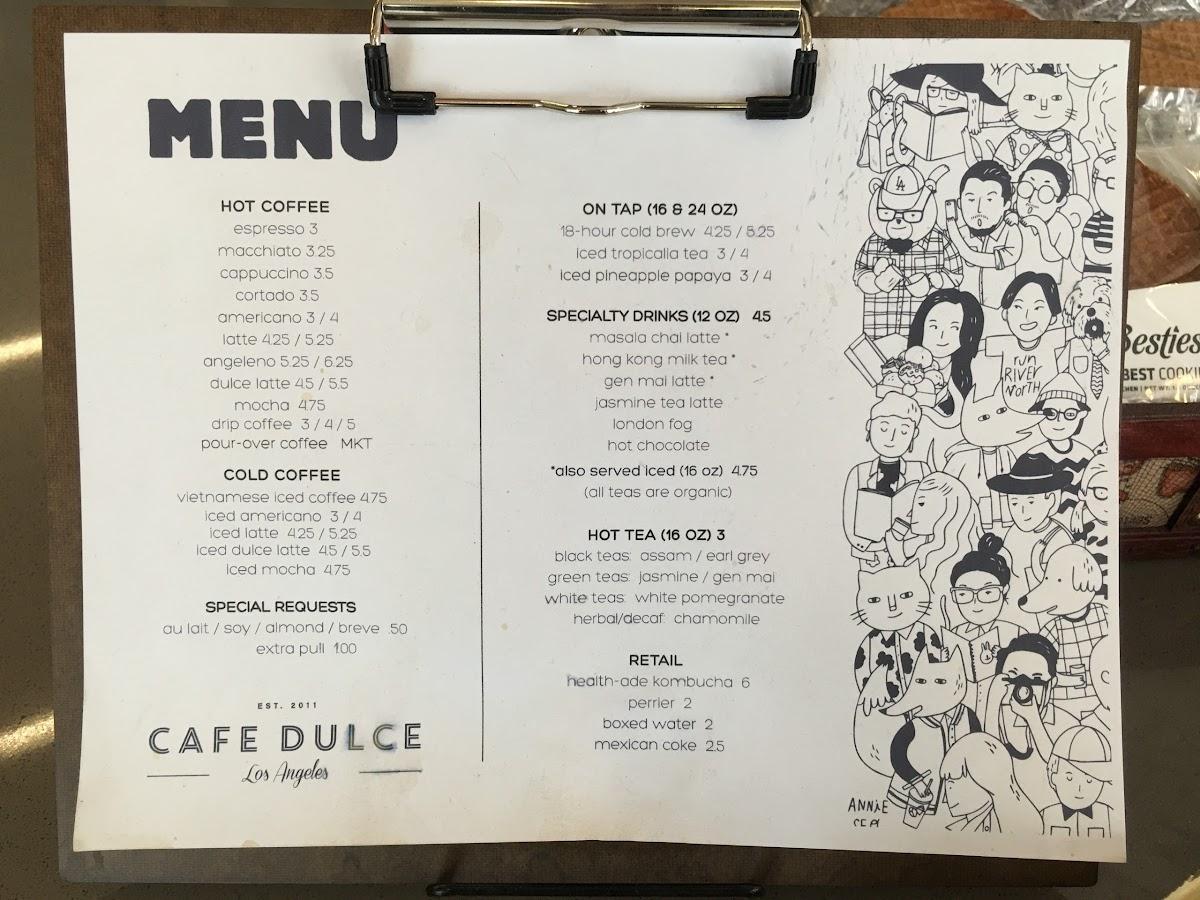 MENU
HOT COFFEE
espresso 3
macchiato 3.25
cappuccino 3.5
cortado 3.5
americano 3 / 4
latte 4.25 / 5.25
angeleno 5.25 / 6.25
dulce latte 4.5 / 5.5
mocha 4.75
drip coffee 3 / 4 / 5
pour-over coffee MKT
COLD COFFEE
vietnamese iced coffee 4.75
iced americano 3 / 4
iced latte 4.25 / 5.25
iced dulce latte 4.5 / 5.5
iced mocha 4.75
SPECIAL REQUESTS
au lait / soy / almond / breve .50
extra pull 1.00
EST. 2011
CAFE DULCE
Los Angeles
ON TAP (16 & 24 OZ)
18-hour cold brew 4.25 / 5.25
iced tropicalia tea 3 / 4
iced pineapple papaya 3 / 4
SPECIALTY DRINKS (12 OZ) 4.5
masala chai latte *
hong kong milk tea *
gen mai latte *
jasmine tea latte
london fog
hot chocolate
*also served iced (16 oz) 4.75
(all teas are organic)
HOT TEA (16 OZ) 3
black teas: assam / earl grey
green teas: jasmine / gen mai
white teas: white pomegranate
herbal/decaf: chamomile
RETAIL
health-ade kombucha 6
perrier 2
boxed water 2
mexican coke 2.5
LA
run
RIVER
NORTH
ANNIE
Besties
BEST COOKI